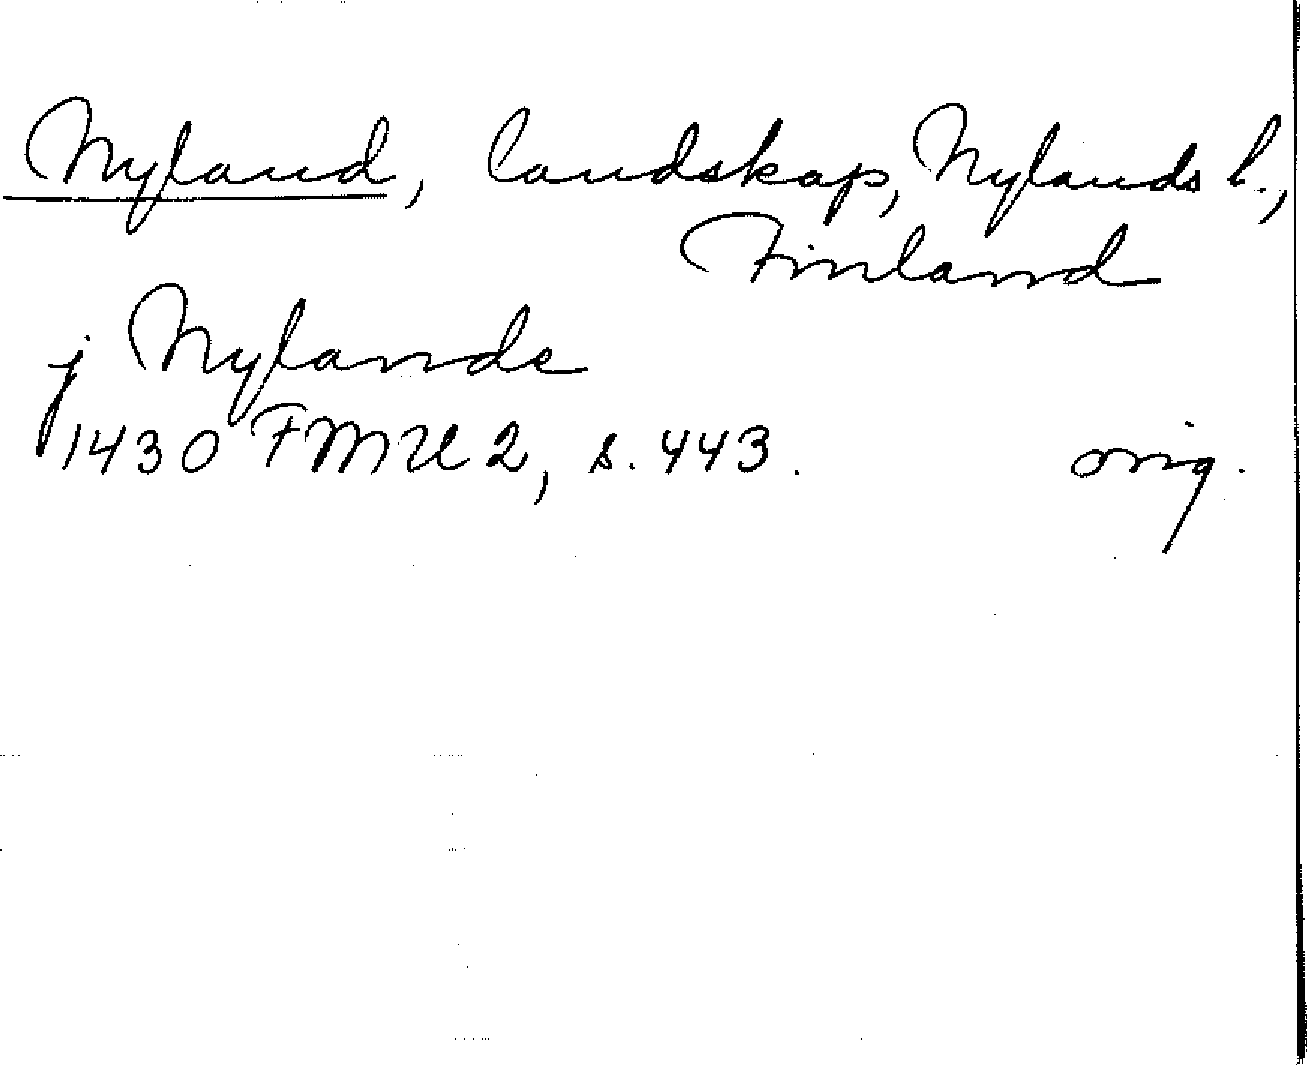 Nyland, landskap, Nylands l.,
Finland
j Nylande
1430 FMU 2, s. 443. orig.